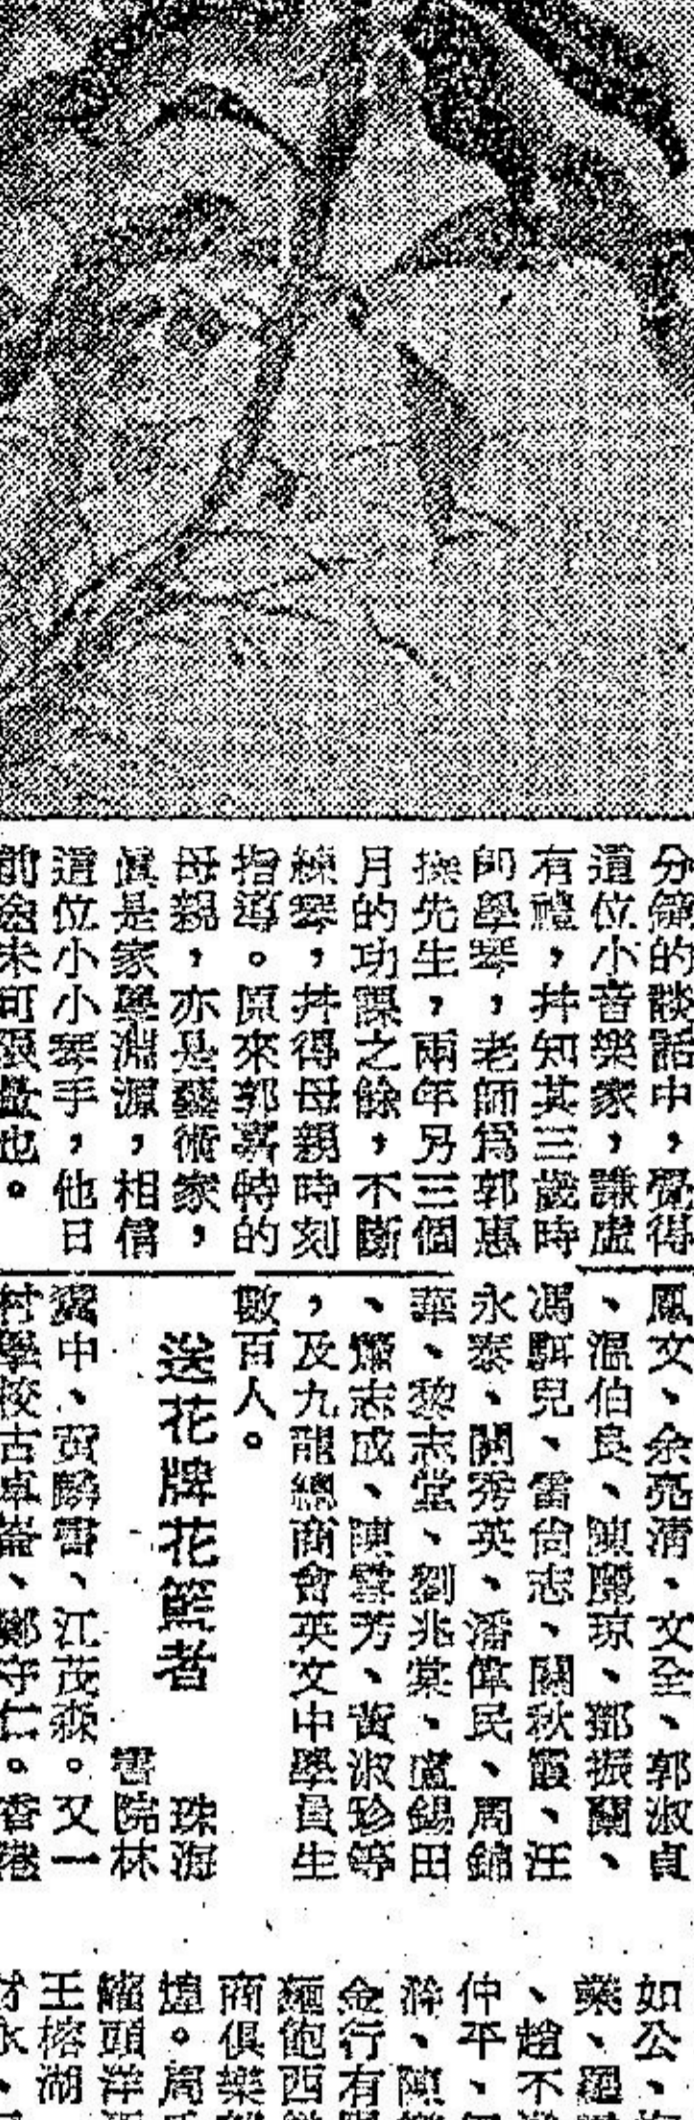 分鐘的談話中，覺得
這位小音樂家，謙虛
有禮，幷知其三歲時
師學琴，老師爲郭惠
操先生，兩年另三個
月的功課之餘，不斷
練琴，幷得母親時刻
指導。原來郭嘉特的
母親，亦是藝術家，
眞是家學淵源，相信
這位小小琴手，他日
前途未可限量也。
鳳文、余亮淸、文全、郭淑貞
、溫伯良、陳麗琼、鄧振蘭、
馮駬兒、雷尙志、關秋霞、汪
永泰、關秀英、潘偉民、周錦
華、黎志堂、劉兆棠、盧錫田
、蕭志成、陳雲芳、黃淑珍等
，及九龍總商會英文中學員生
數百人。
送花牌花籃者
珠海
書院林
翼中、黃麟書、江茂森。又一
村學校古卓崙、鄭守仁。香港
如公、
業、羅
、趙不
仲平、
、陳
金行有
麵飽西
商俱樂
煌。周
罐頭洋
王榕湖
材永、